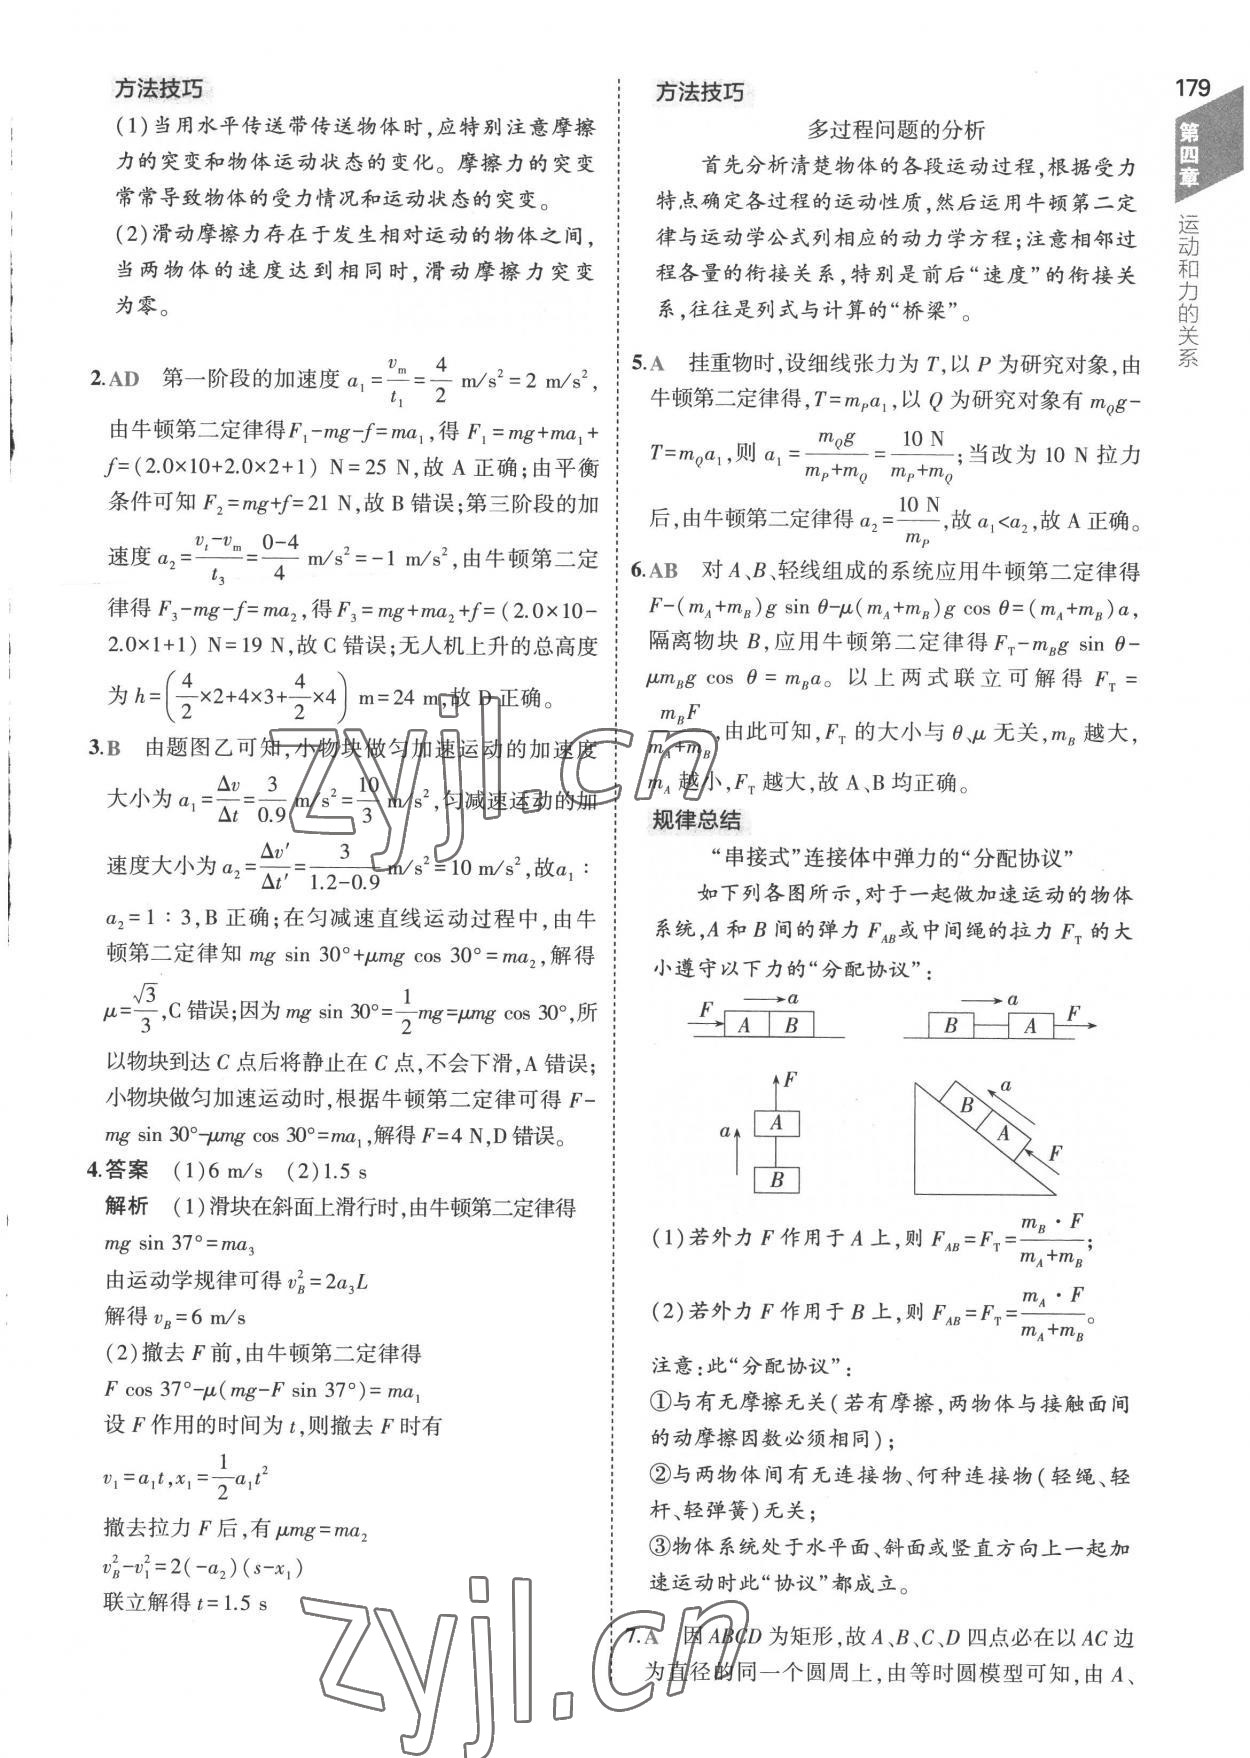 方法技巧
(1)当用水平传送带传送物体时,应特别注意摩擦
力的突变和物体运动状态的变化。摩擦力的突变
常常导致物体的受力情况和运动状态的突变。
(2)滑动摩擦力存在于发生相对运动的物体之间,
当两物体的速度达到相同时,滑动摩擦力突变
为零。
2.AD 第一阶段的加速度 a₁=vₘ/t₁=4/2 m/s²=2 m/s²,
由牛顿第二定律得F₁-mg-f=ma₁,得 F₁=mg+ma₁+
f=(2.0×10+2.0×2+1) N=25 N,故 A 正确;由平衡
条件可知 F₂=mg+f=21 N,故 B 错误;第三阶段的加
速度 a₂=(vₜ-vₘ)/t₃=(0-4)/4 m/s²=-1 m/s²,由牛顿第二定
律得 F₃-mg-f=ma₂,得F₃=mg+ma₂+f=(2.0×10-
2.0×1+1) N=19 N,故 C 错误;无人机上升的总高度
为 h=(4/2×2+4×3+4/2×4) m=24 m,故 D 正确。
3.B 由题图乙可知,小物块做匀加速运动的加速度
大小为 a₁=Δv/Δt=3/0.9 m/s²=10/3 m/s²,匀减速运动的加
速度大小为 a₂=Δv′/Δt′=3/(1.2-0.9) m/s²=10 m/s²,故a₁∶
a₂=1∶3,B 正确;在匀减速直线运动过程中,由牛
顿第二定律知 mg sin 30°+μmg cos 30°=ma₂,解得
μ=√3/3,C 错误;因为 mg sin 30°=1/2mg=μmg cos 30°,所
以物块到达 C 点后将静止在 C 点,不会下滑,A 错误;
小物块做匀加速运动时,根据牛顿第二定律可得 F-
mg sin 30°-μmg cos 30°=ma₁,解得 F=4 N,D 错误。
4.答案 (1)6 m/s (2)1.5 s
解析 (1)滑块在斜面上滑行时,由牛顿第二定律得
mg sin 37°=ma₃
由运动学规律可得 v_B²=2a₃L
解得 v_B=6 m/s
(2)撤去 F 前,由牛顿第二定律得
F cos 37°-μ(mg-F sin 37°)=ma₁
设 F 作用的时间为 t,则撤去 F 时有
v₁=a₁t,x₁=1/2a₁t²
撤去拉力 F 后,有 μmg=ma₂
v_B²-v₁²=2(-a₂)(s-x₁)
联立解得 t=1.5 s
方法技巧
多过程问题的分析
首先分析清楚物体的各段运动过程,根据受力
特点确定各过程的运动性质,然后运用牛顿第二定
律与运动学公式列相应的动力学方程;注意相邻过
程各量的衔接关系,特别是前后“速度”的衔接关
系,往往是列式与计算的“桥梁”。
5.A 挂重物时,设细线张力为 T,以 P 为研究对象,由
牛顿第二定律得,T=m_Pa₁,以 Q 为研究对象有 m_Qg-
T=m_Qa₁,则 a₁=m_Qg/(m_P+m_Q)=10 N/(m_P+m_Q);当改为 10 N 拉力
后,由牛顿第二定律得 a₂=10 N/m_P,故 a₁<a₂,故 A 正确。
6.AB 对 A、B、轻线组成的系统应用牛顿第二定律得
F-(m_A+m_B)g sin θ-μ(m_A+m_B)g cos θ=(m_A+m_B)a,
隔离物块 B,应用牛顿第二定律得 F_T-m_Bg sin θ-
μm_Bg cos θ=m_Ba。以上两式联立可解得 F_T=
m_BF/(m_A+m_B),由此可知,F_T 的大小与 θ、μ 无关,m_B 越大,
m_A 越小,F_T 越大,故 A、B 均正确。
规律总结
“串接式”连接体中弹力的“分配协议”
如下列各图所示,对于一起做加速运动的物体
系统,A 和 B 间的弹力 F_AB或中间绳的拉力 F_T 的大
小遵守以下力的“分配协议”:
F a A B
a B A F
F A a B
a B A F
(1)若外力 F 作用于 A 上,则 F_AB=F_T=m_B·F/(m_A+m_B);
(2)若外力 F 作用于 B 上,则 F_AB=F_T=m_A·F/(m_A+m_B)。
注意:此“分配协议”:
①与有无摩擦无关(若有摩擦,两物体与接触面间
的动摩擦因数必须相同);
②与两物体间有无连接物、何种连接物(轻绳、轻
杆、轻弹簧)无关;
③物体系统处于水平面、斜面或竖直方向上一起加
速运动时此“协议”都成立。
7.A 因 ABCD 为矩形,故 A、B、C、D 四点必在以 AC 边
为直径的同一个圆周上,由等时圆模型可知,由 A、
179
第四章
运动和力的关系
zyjl.cn
zyjl.cn